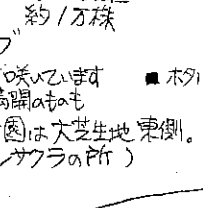 約1万株
ブ
咲いています ■ホタル
満開のものも
園は大芝生地東側。
ンサクラの所)